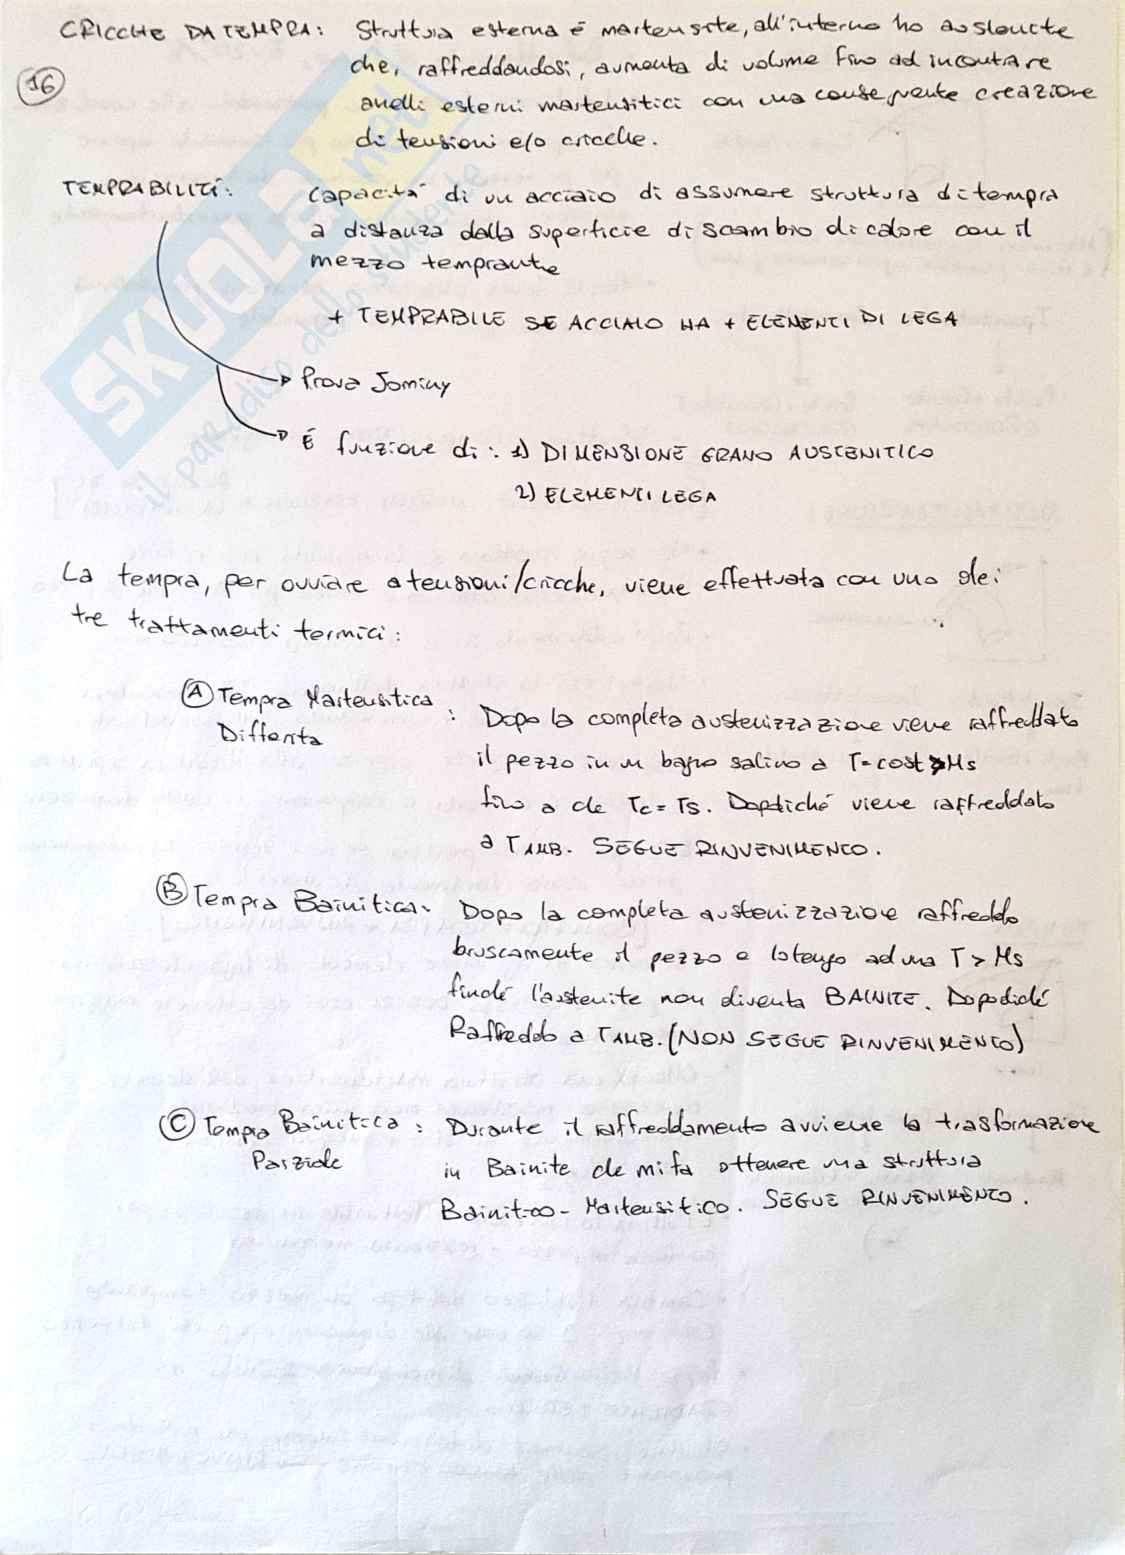 CRICCHE DA TEMPRA: Struttura esterna è martensite, all'interno ho austenite
che, raffreddandosi, aumenta di volume fino ad incontrare
16
anelli esterni martensitici con una conseguente creazione
di tensioni e/o cricche.
TEMPRABILITÁ: Capacitá di un acciaio di assumere struttura di tempra
a distanza dalla superficie di scambio di calore con il
mezzo temprante
+ TEMPRABILE SE ACCIAIO HA + ELEMENTI DI LEGA
Prova Jominy
É funzione di: 1) DIMENSIONE GRANO AUSTENITICO
2) ELEMENTI LEGA
La tempra, per ovviare a tensioni/cricche, viene effettuata con uno dei
tre trattamenti termici:
A Tempra Martensitica : Dopo la completa austenizzazione viene raffreddato
Differita
il pezzo in un bagno salino a T=cost > Ms
fino a che Tc = Ts. Dopdiché viene raffreddato
a TAMB. SEGUE RINVENIMENTO.
B Tempra Bainitica: Dopo la completa austenizzazione raffreddo
bruscamente il pezzo e lo tengo ad una T > Ms
finché l'austenite non diventa BAINITE. Dopodiché
Raffreddo a TAMB. (NON SEGUE RINVENIMENTO)
C Tempra Bainitica : Durante il raffreddamento avviene la trasformazione
Parziale
in Bainite che mi fa ottenere una struttura
Bainitico - Martensitico. SEGUE RINVENIMENTO.
SKUOLA.net
il paradiso dello studente